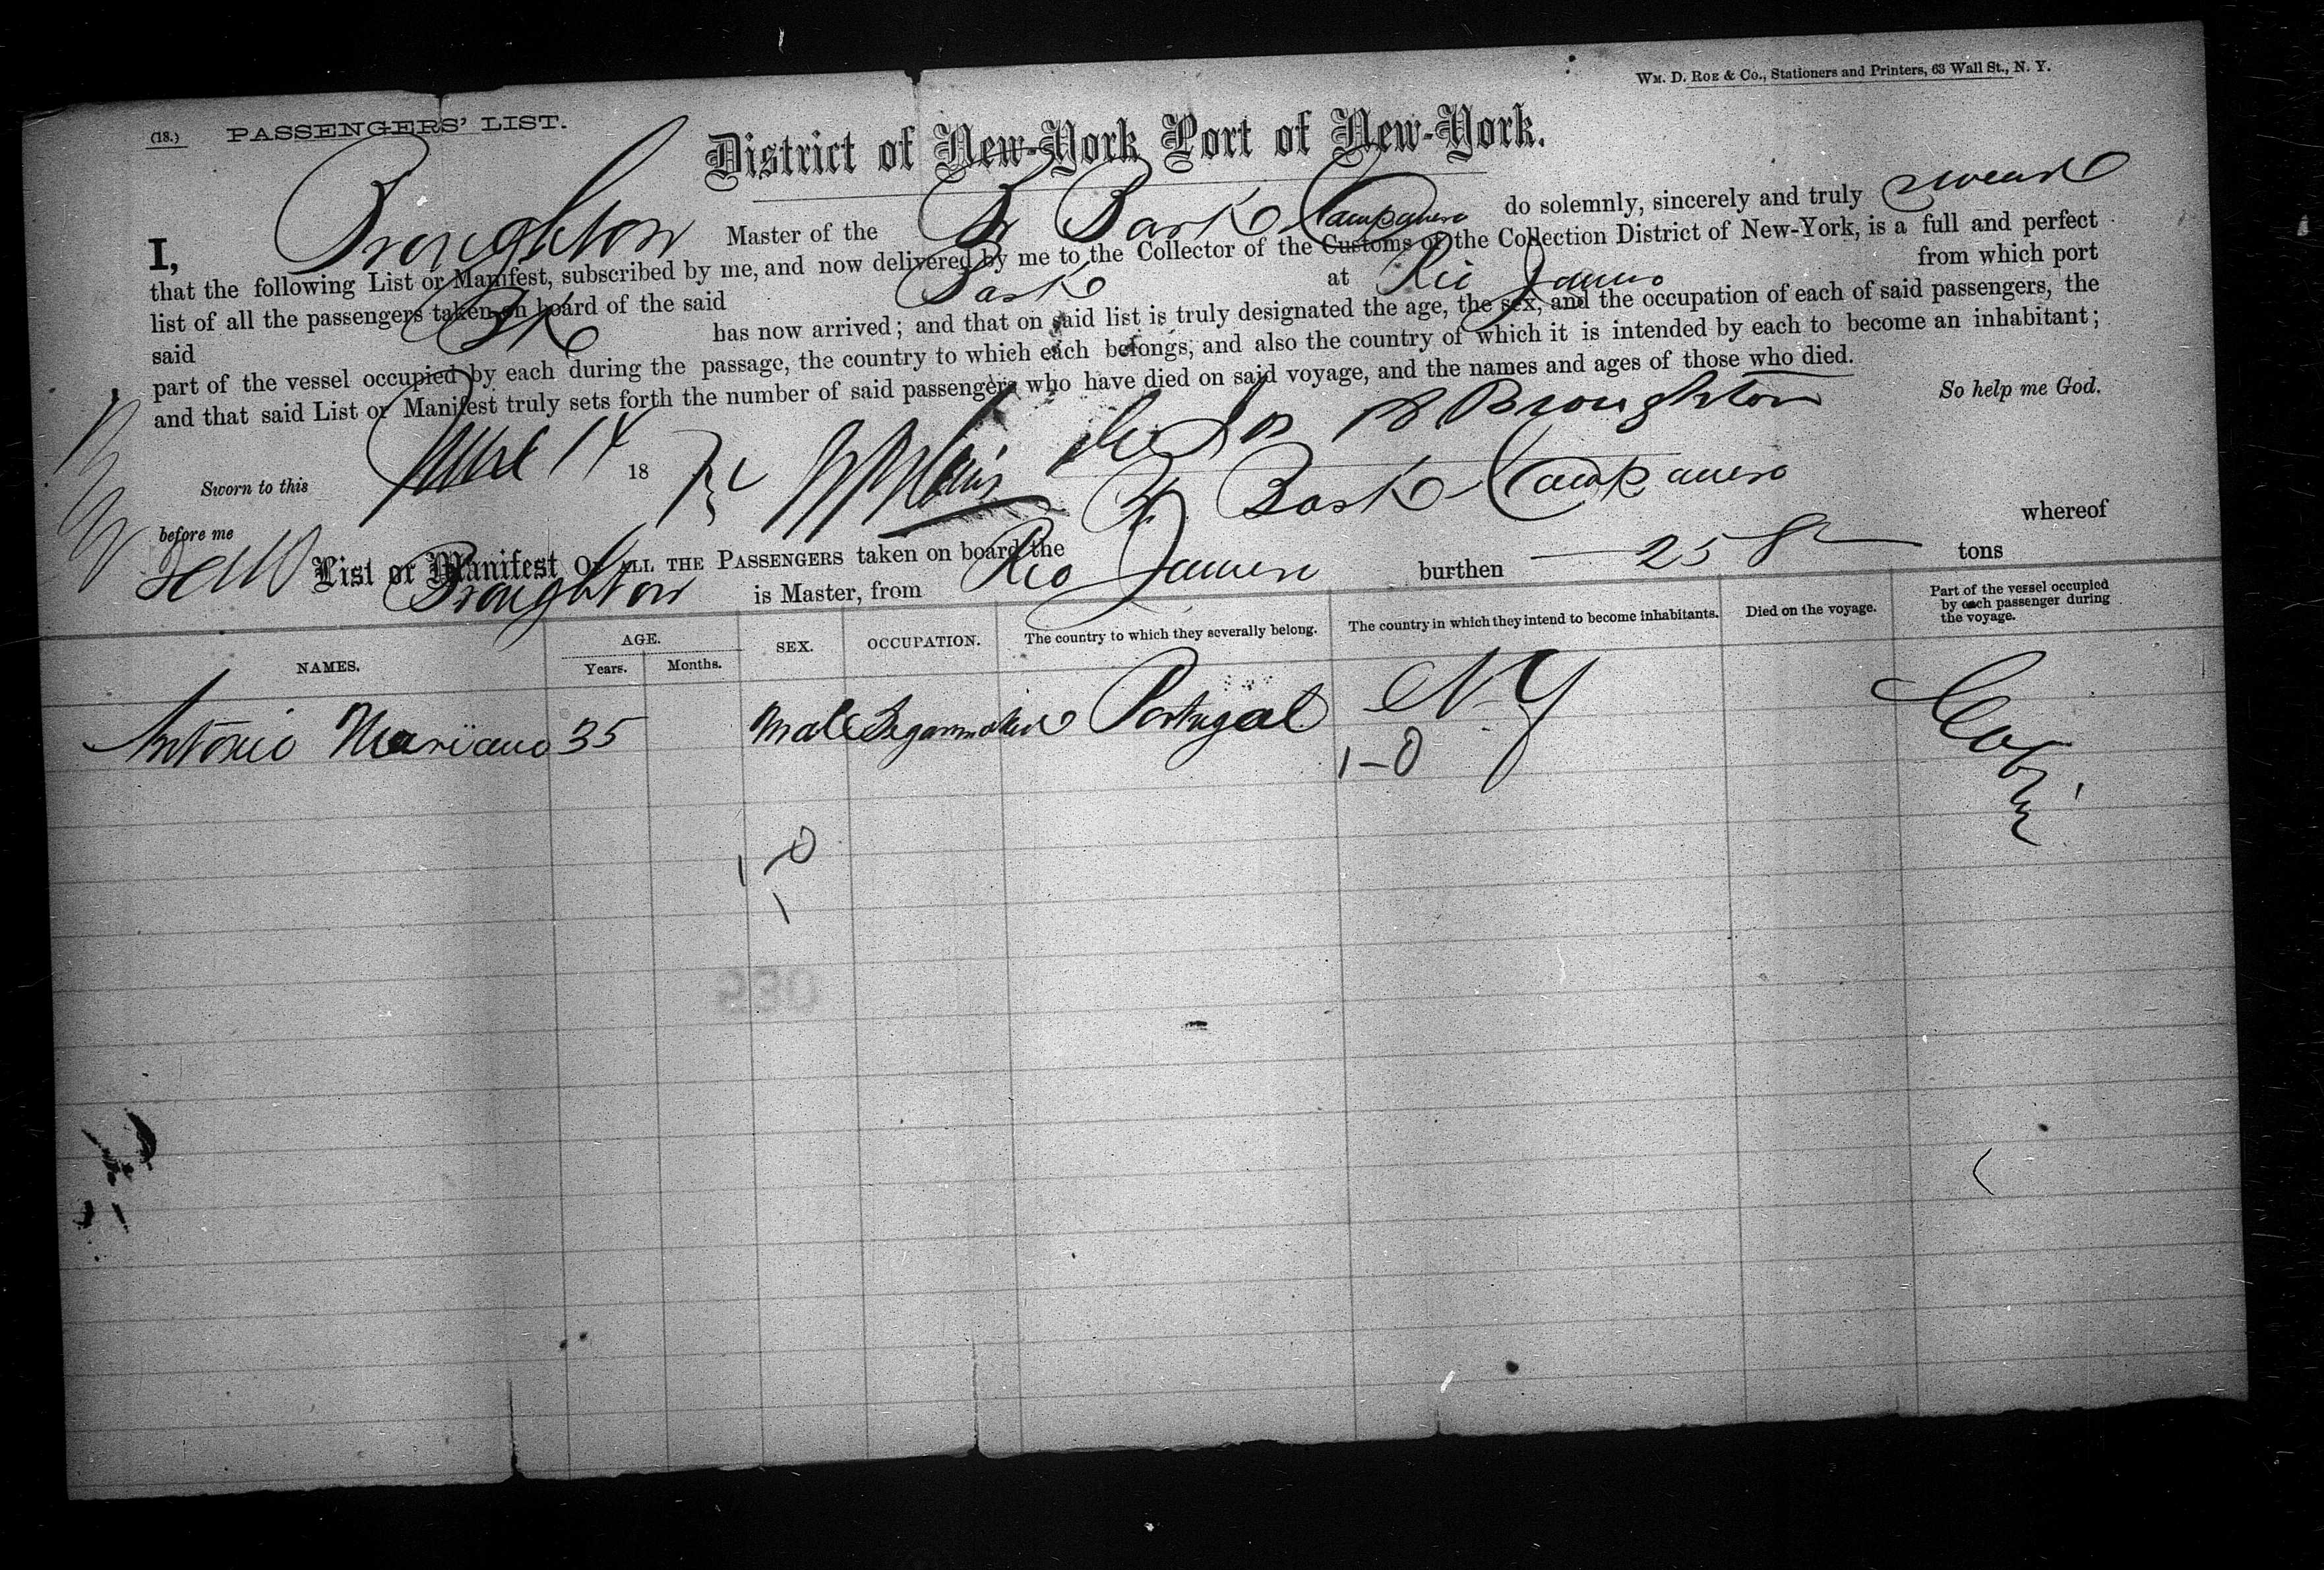 WM. D. ROE & CO., Stationers and Printers, 63 Wall St., N. Y.
(18.) PASSENGERS' LIST.
District of New-York Port of New-York.
I, Broughton Master of the Br Bark Campanero do solemnly, sincerely and truly swear
that the following List or Manifest, subscribed by me, and now delivered by me to the Collector of the Customs of the Collection District of New-York, is a full and perfect
list of all the passengers taken on board of the said Bark at Rio Janeiro from which port
said Bk has now arrived; and that on said list is truly designated the age, the sex, and the occupation of each of said passengers, the
part of the vessel occupied by each during the passage, the country to which each belongs, and also the country of which it is intended by each to become an inhabitant;
and that said List or Manifest truly sets forth the number of said passengers who have died on said voyage, and the names and ages of those who died.
So help me God.
Broughton
Sworn to this June 14 18
before me
List or Manifest OF ALL THE PASSENGERS taken on board the Br. Bark Campanero whereof
Broughton is Master, from Rio Janeiro burthen 258 tons
NAMES. AGE. Years. Months. SEX. OCCUPATION. The country to which they severally belong. The country in which they intend to become inhabitants. Died on the voyage. Part of the vessel occupied by each passenger during the voyage.
Antonio Mariano 35 Male Segarmaker Portugal N Y Cabin
1-0
1-0
1